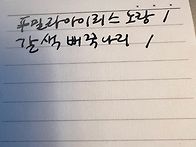 푸밀라아이리스 노랑 1
갈색 뻐꾹나리 1